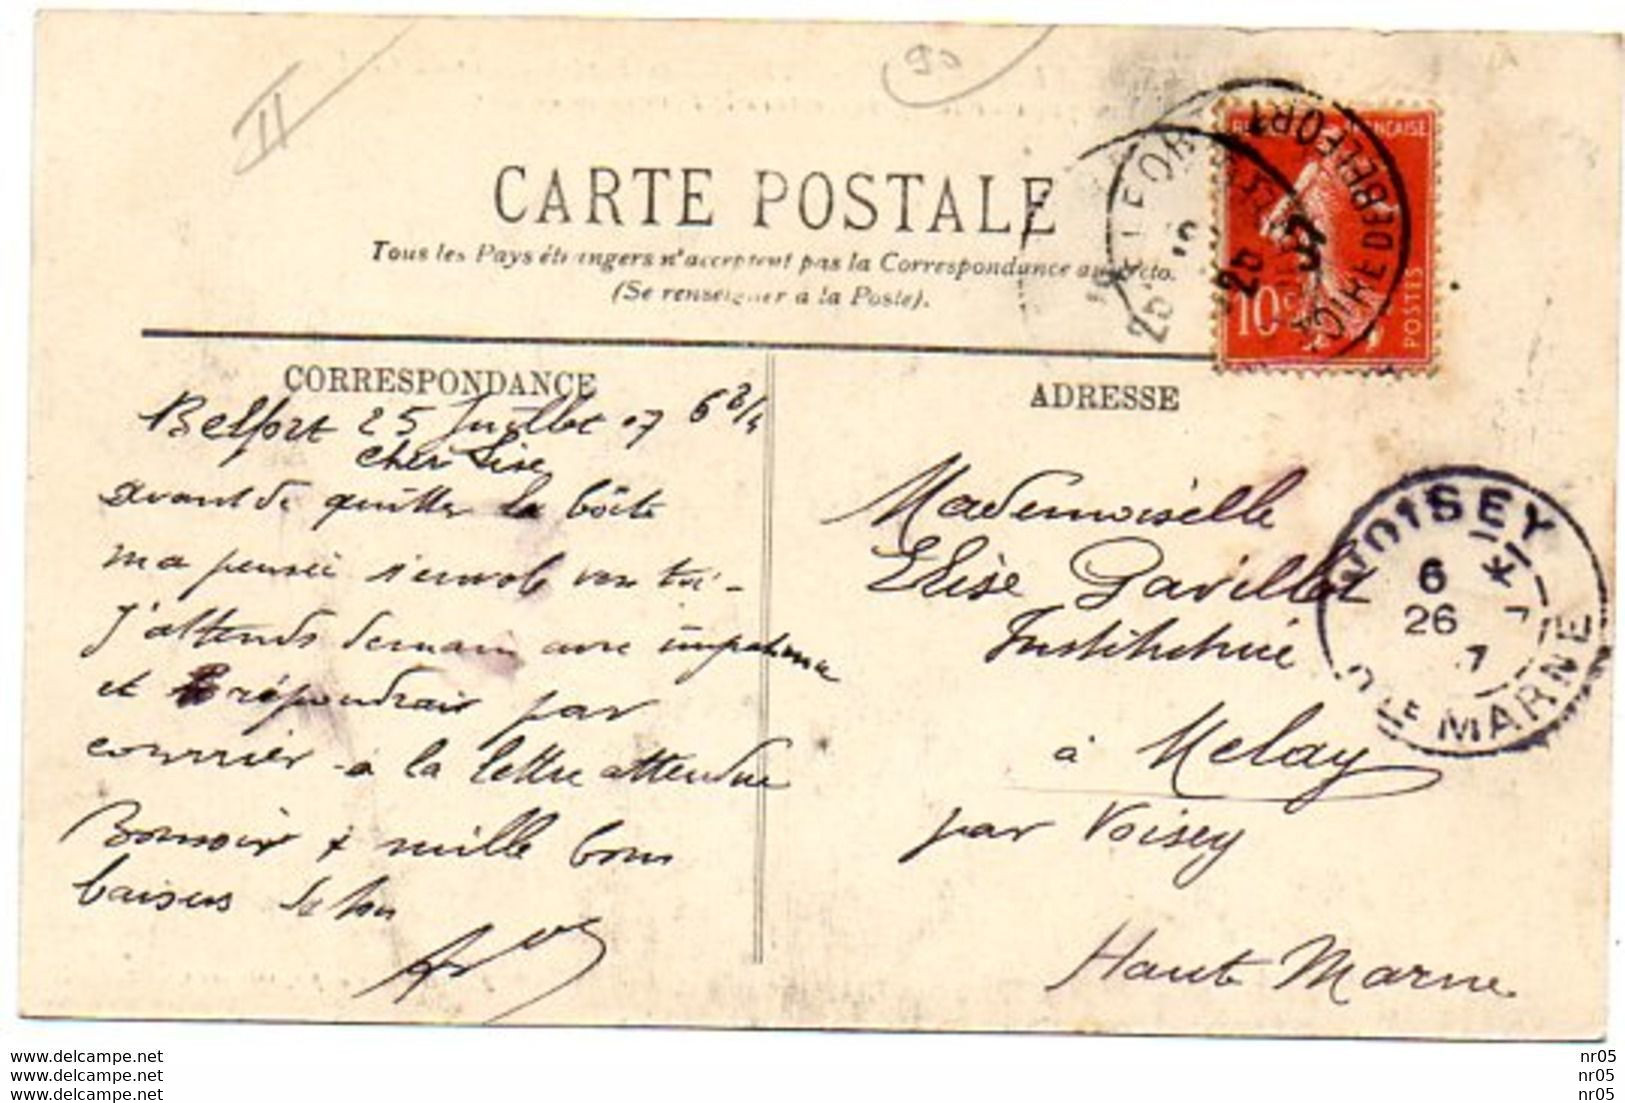 II
90
CARTE POSTALE
Tous les Pays étrangers n'acceptent pas la Correspondance au recto.
(Se renseigner à la Poste).
RÉPUBLIQUE FRANÇAISE
10c
POSTES
BELFORT
25
TOIRE DE BELFORT
CORRESPONDANCE
Belfort 25 Juillet 07 6 3/4
Cher Lise
Avant de quitter la boîte
ma pensée s'envole vers toi -
J'attends demain avec impatience
et répondrai par
courrier à la lettre attendue
Bonsoir & mille bons
baisers de ton
ADRESSE
Mademoiselle
Elise Pavillet
Institutrice
à Melay
par Voisey
Haute Marne
VOISEY
6
26
7
HTE MARNE
www.delcampe.net
www.delcampe.net
www.delcampe.net
nr05
nr05
nr05